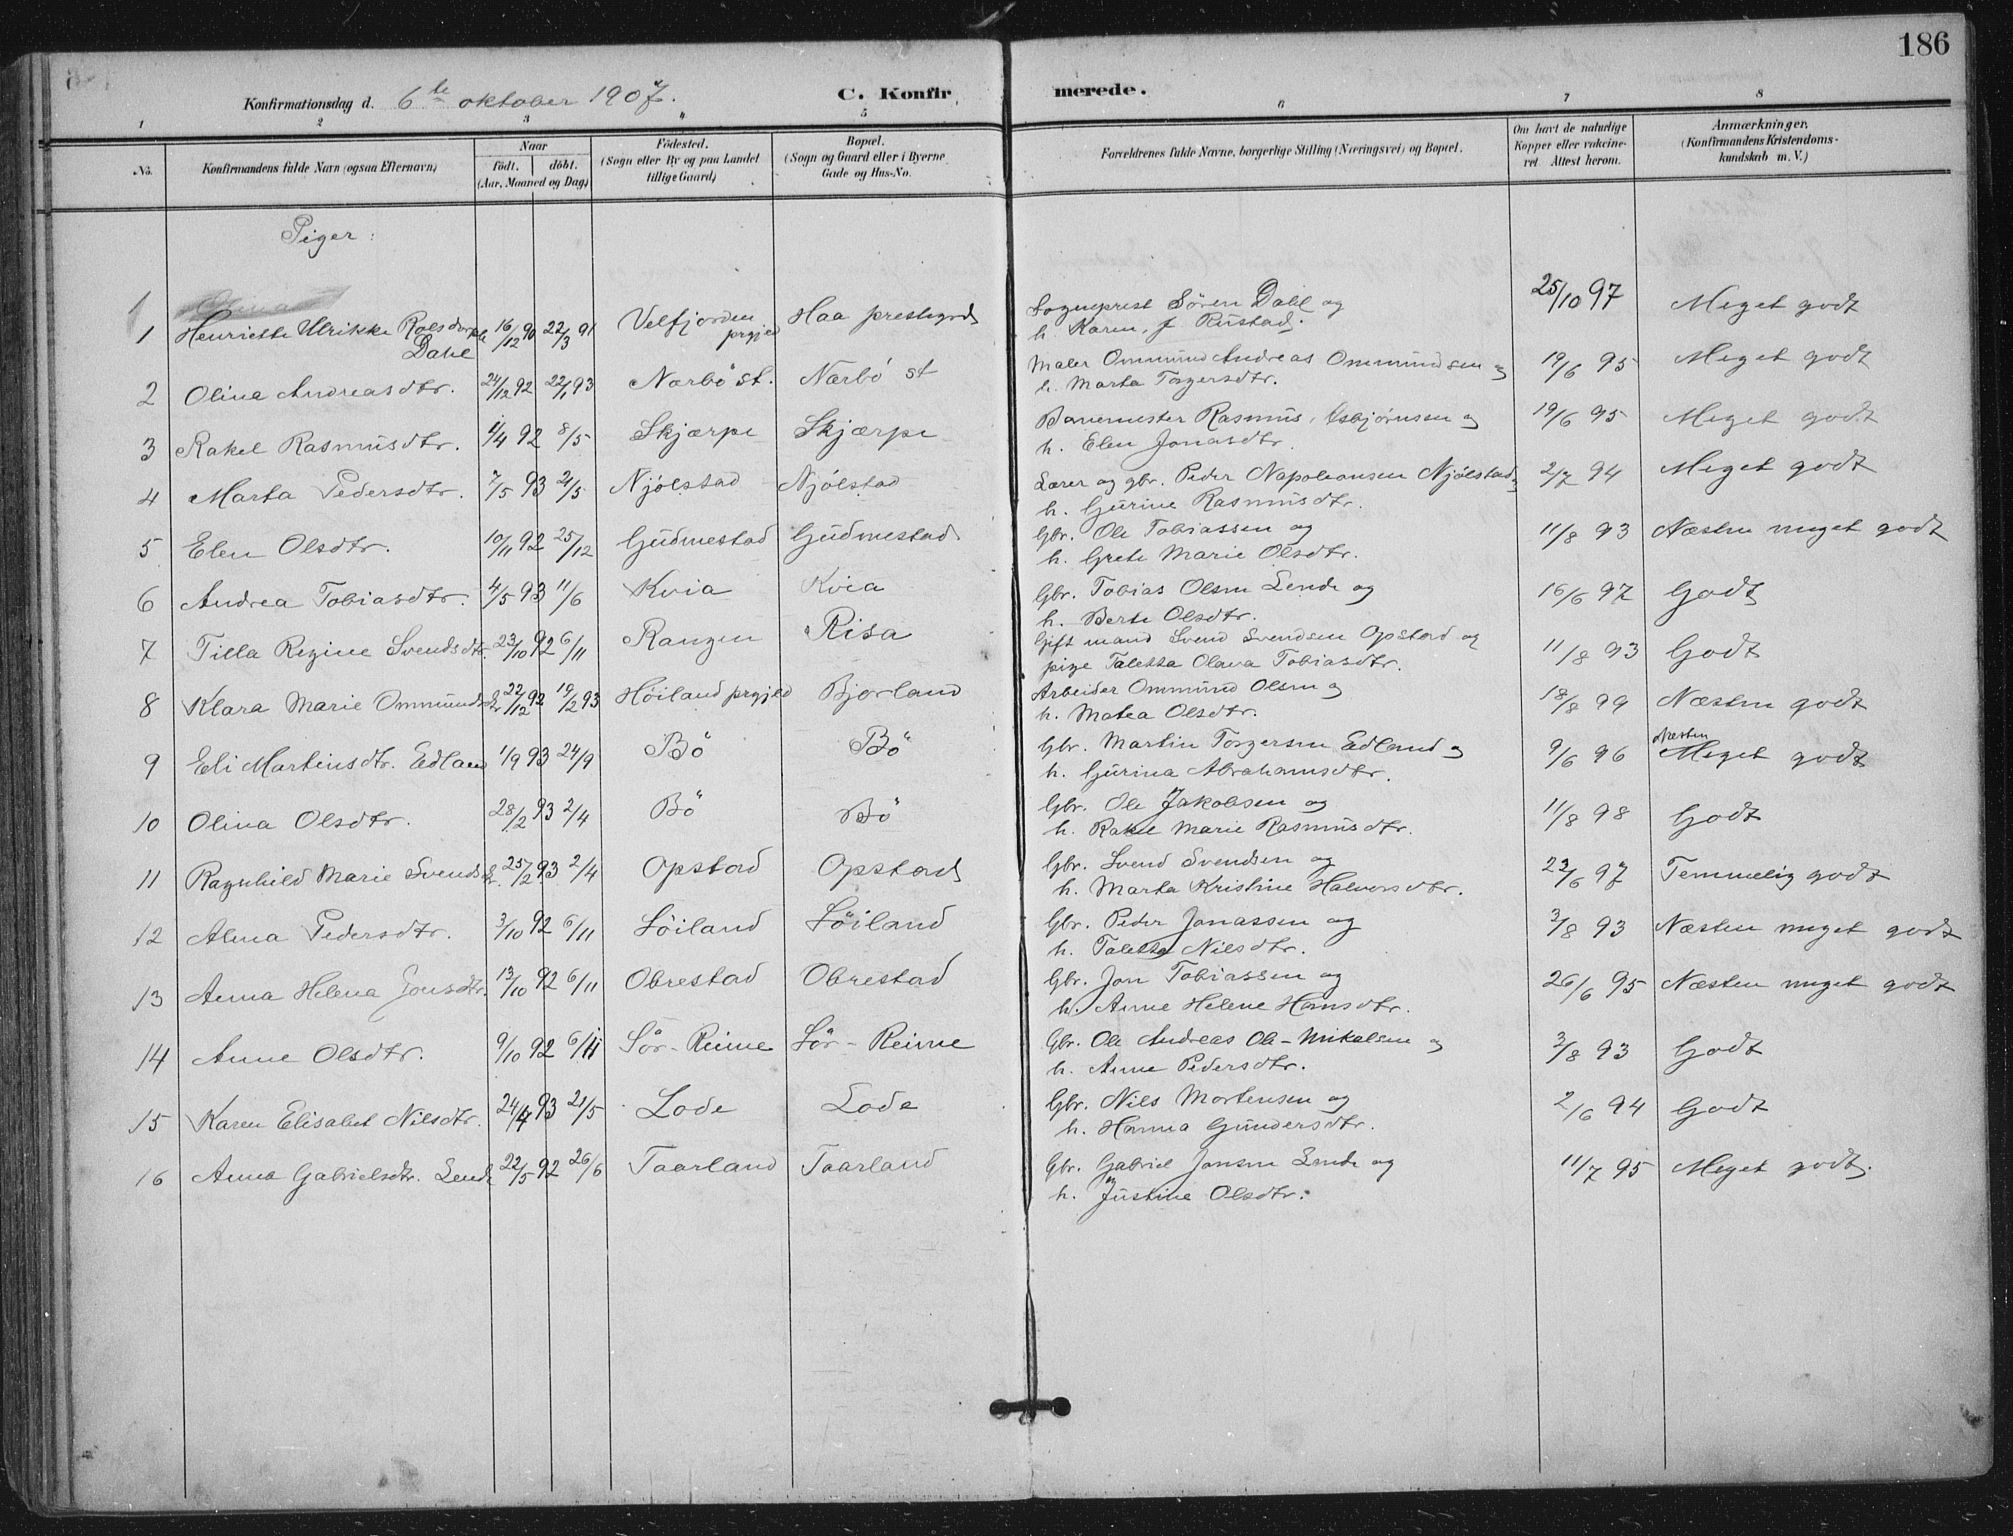 186
Konfirmationsdag d. 6te oktober 1907. C. Konfir merede.
1 2 3 4 5 6 7 8
No. Konfirmandens fulde Navn (ogsaa Efternavn) Naar födt. döbt. (Aar, Maaned og Dag) Födested. (Sogn eller By og paa Landet tillige Gaard) Bopæl. (Sogn og Gaard eller i Byerne Gade og Hus-No. Forældrenes fulde Navne, borgerlige Stilling (Næringsvei) og Bopæl. Om havt de naturlige Kopper eller vakcineret. Attest herom. Anmærkninger. (Konfirmandens Kristendomskundskab m. V.)
Piger:
1 Henriette Ulrikke Dahl 16/12 90 22/3 91 Velfjorden prgjeld Haa prestegrd Sogneprest Sören Dahl og 25/10 97 Meget godt
h. Karen, f. Rustad.
2 Olina Andreasdtr. 24/12 92 22/1 93 Nærbö st. Nærbö st Maler Ommund Andreas Ommundsen og 19/6 95 Meget godt
h. Marta Torgersdtr.
3 Rakel Rasmusdtr. 11/4 92 8/5 Skjærpe Skjærpe Banemester Rasmus Asbjörnsen og 19/6 95 Meget godt
h. Elen Jonasdtr.
4 Marta Pedersdtr. 7/5 93 21/5 Njölstad Njölstad Lærer og gbr. Peder Napoleonsen Njölstad og 2/7 94 Meget godt
h. Gurine Rasmusdtr.
5 Elen Olsdtr. 10/11 92 25/12 Gudmestad Gudmestad Gbr. Ole Tobiassen og 11/8 93 Næsten meget godt
h. Grete Marie Olsdtr.
6 Andrea Tobiasdtr. 4/5 93 11/6 Kvia Kvia Gbr. Tobias Olsen Lende og 16/6 97 Godt
h. Berte Olsdtr.
7 Tilla Regine Svendsdtr. 23/10 92 6/11 Rangen Risa Gift mand Svend Svendsen Opstad og 11/8 93 Godt
pige Taletta Olava Tobiasdtr.
8 Klara Marie Ommundsdtr 22/12 92 19/2 93 Höiland prgjeld Bjorland Arbeider Ommund Olsen og 18/8 99 Næsten godt
h. Matea Olsdtr.
9 Eli Martinsdtr. Edland 1/9 93 24/9 Bö Bö Gbr. Martin Torgersen Edland og 9/6 96 Næsten Meget godt
h. Gurina Abrahamsdtr.
10 Olina Olsdtr. 28/2 93 2/4 Bö Bö Gbr. Ole Jakobsen og 11/8 98 Godt
h. Rakel Marie Rasmusdtr.
11 Ragnhild Marie Svendsdtr. 25/2 93 2/4 Opstad Opstad Gbr. Svend Svendsen og 22/6 97 Temmelig godt
h. Marta Kristine Halvorsdtr.
12 Alma Pedersdtr. 3/10 92 6/11 Löiland Löiland Gbr. Peder Jonassen og 3/8 93 Næsten meget godt
h. Taletta Nilsdtr.
13 Anna Helena Jonsdtr. 13/10 92 6/11 Obrestad Obrestad Gbr. Jon Tobiassen og 26/6 95 Næsten meget godt
h. Anne Helene Hansdtr.
14 Anne Olsdtr. 9/10 92 6/11 Sör-Reime Sör-Reime Gbr. Ole Andreas Ole-Mikalsen og 3/8 93 Godt
h. Anne Pedersdtr.
15 Karen Elisabet Nilsdtr. 24/4 93 21/5 Lode Lode Gbr. Nils Mortensen og 2/6 94 Godt
h. Hanna Gundersdtr.
16 Anna Gabrielsdtr. Lende 22/5 92 26/6 Taarland Taarland Gbr. Gabriel Jonsen Lende og 11/7 95 Meget godt.
h. Justine Olsdtr.